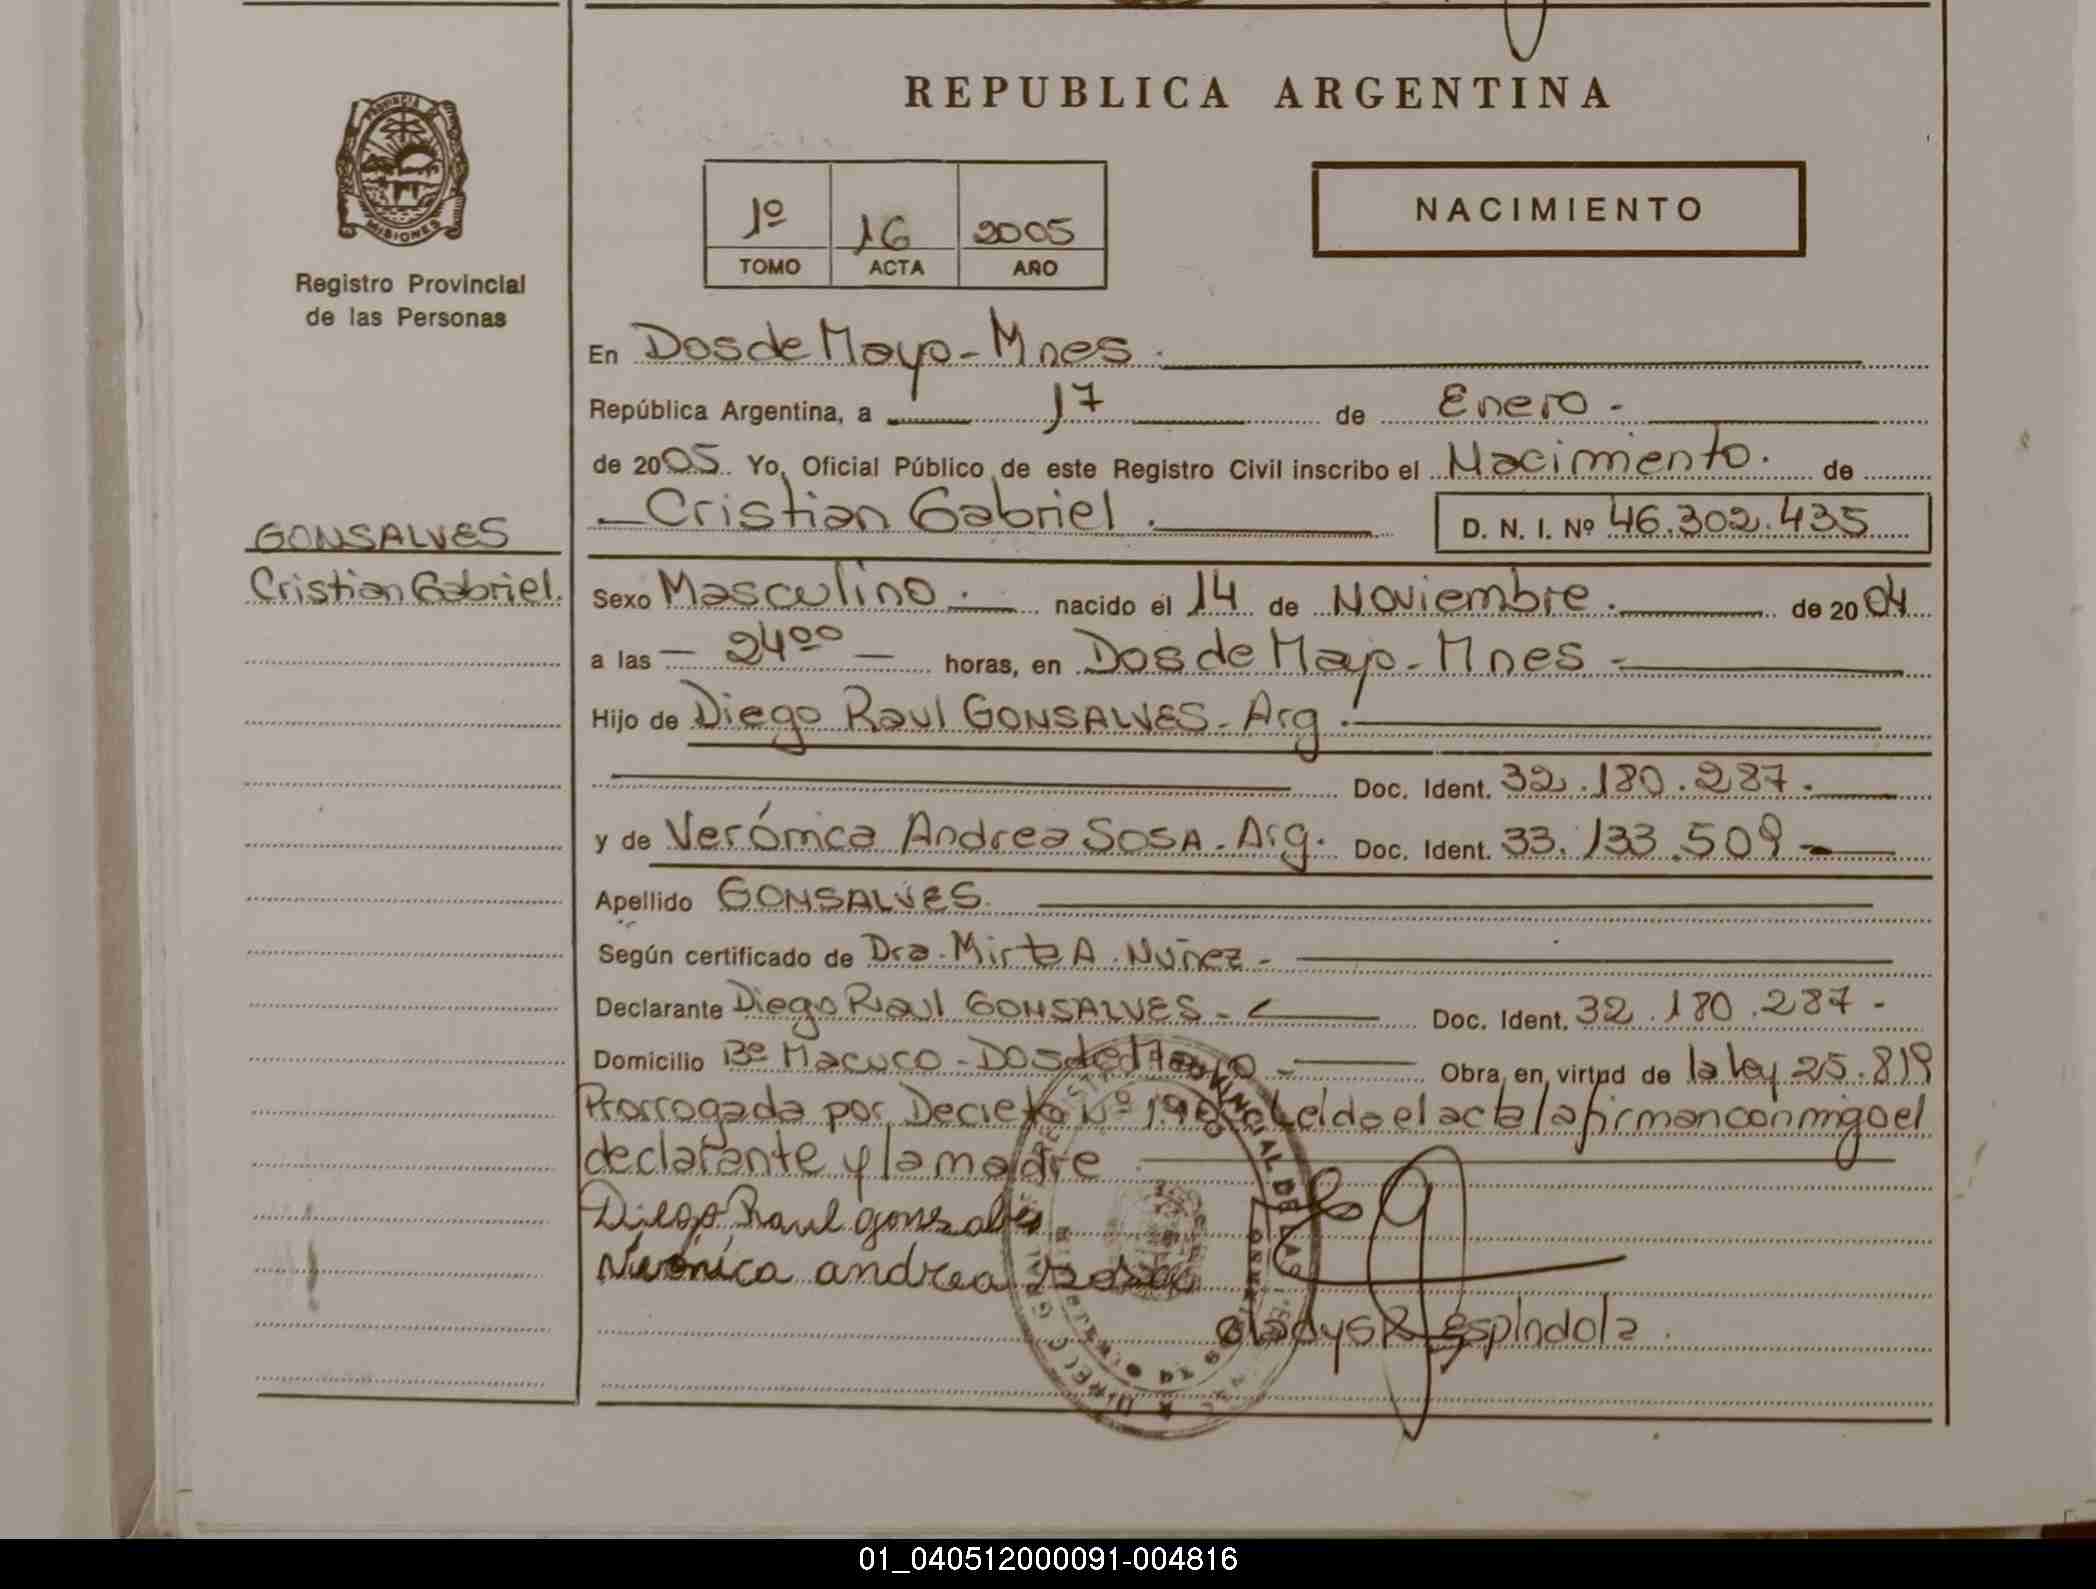 REPUBLICA ARGENTINA
PROVINCIA DE
MISIONES
Registro Provincial
de las Personas
NACIMIENTO
1º 16 2005
TOMO ACTA AÑO
En Dos de Mayo - Mnes.
República Argentina, a 17 de Enero -
de 2005. Yo, Oficial Público de este Registro Civil inscribo el Nacimiento. de
Cristian Gabriel. D. N. I. Nº 46.302.435
GONSALVES
Cristian Gabriel.
Sexo Masculino. nacido el 14 de Noviembre. de 2004
a las - 24ºº - horas, en Dos de Mayo - Mnes -
Hijo de Diego Raul GONSALVES - Arg.
Doc. Ident. 32.180.287.
y de Verónica Andrea SOSA - Arg. Doc. Ident. 33.133.509 -
Apellido GONSALVES.
Según certificado de Dra. Mirta A. Nuñez -
Declarante Diego Raul GONSALVES - Doc. Ident. 32.180.287 -
Domicilio Bº Macuco - Dos de Mayo - Obra en virtud de la ley 25.819
Prorrogada por Decreto Nº Leida el acta la firman conmigo el
declarante y la madre
Diego Raul gonsalves
Verónica andrea sosa
Gladys R. Espindola.
01_040512000091-004816